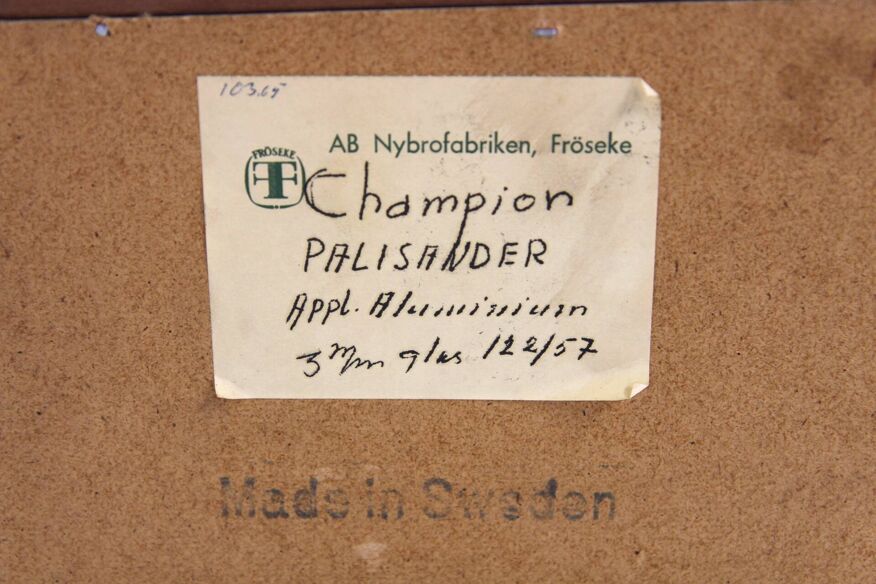 103.65
AB Nybrofabriken, Fröseke
FRÖSEKE
F
Champion
PALISANDER
Appl. Aluminium
3 m/m glas 122/57
Made in Sweden